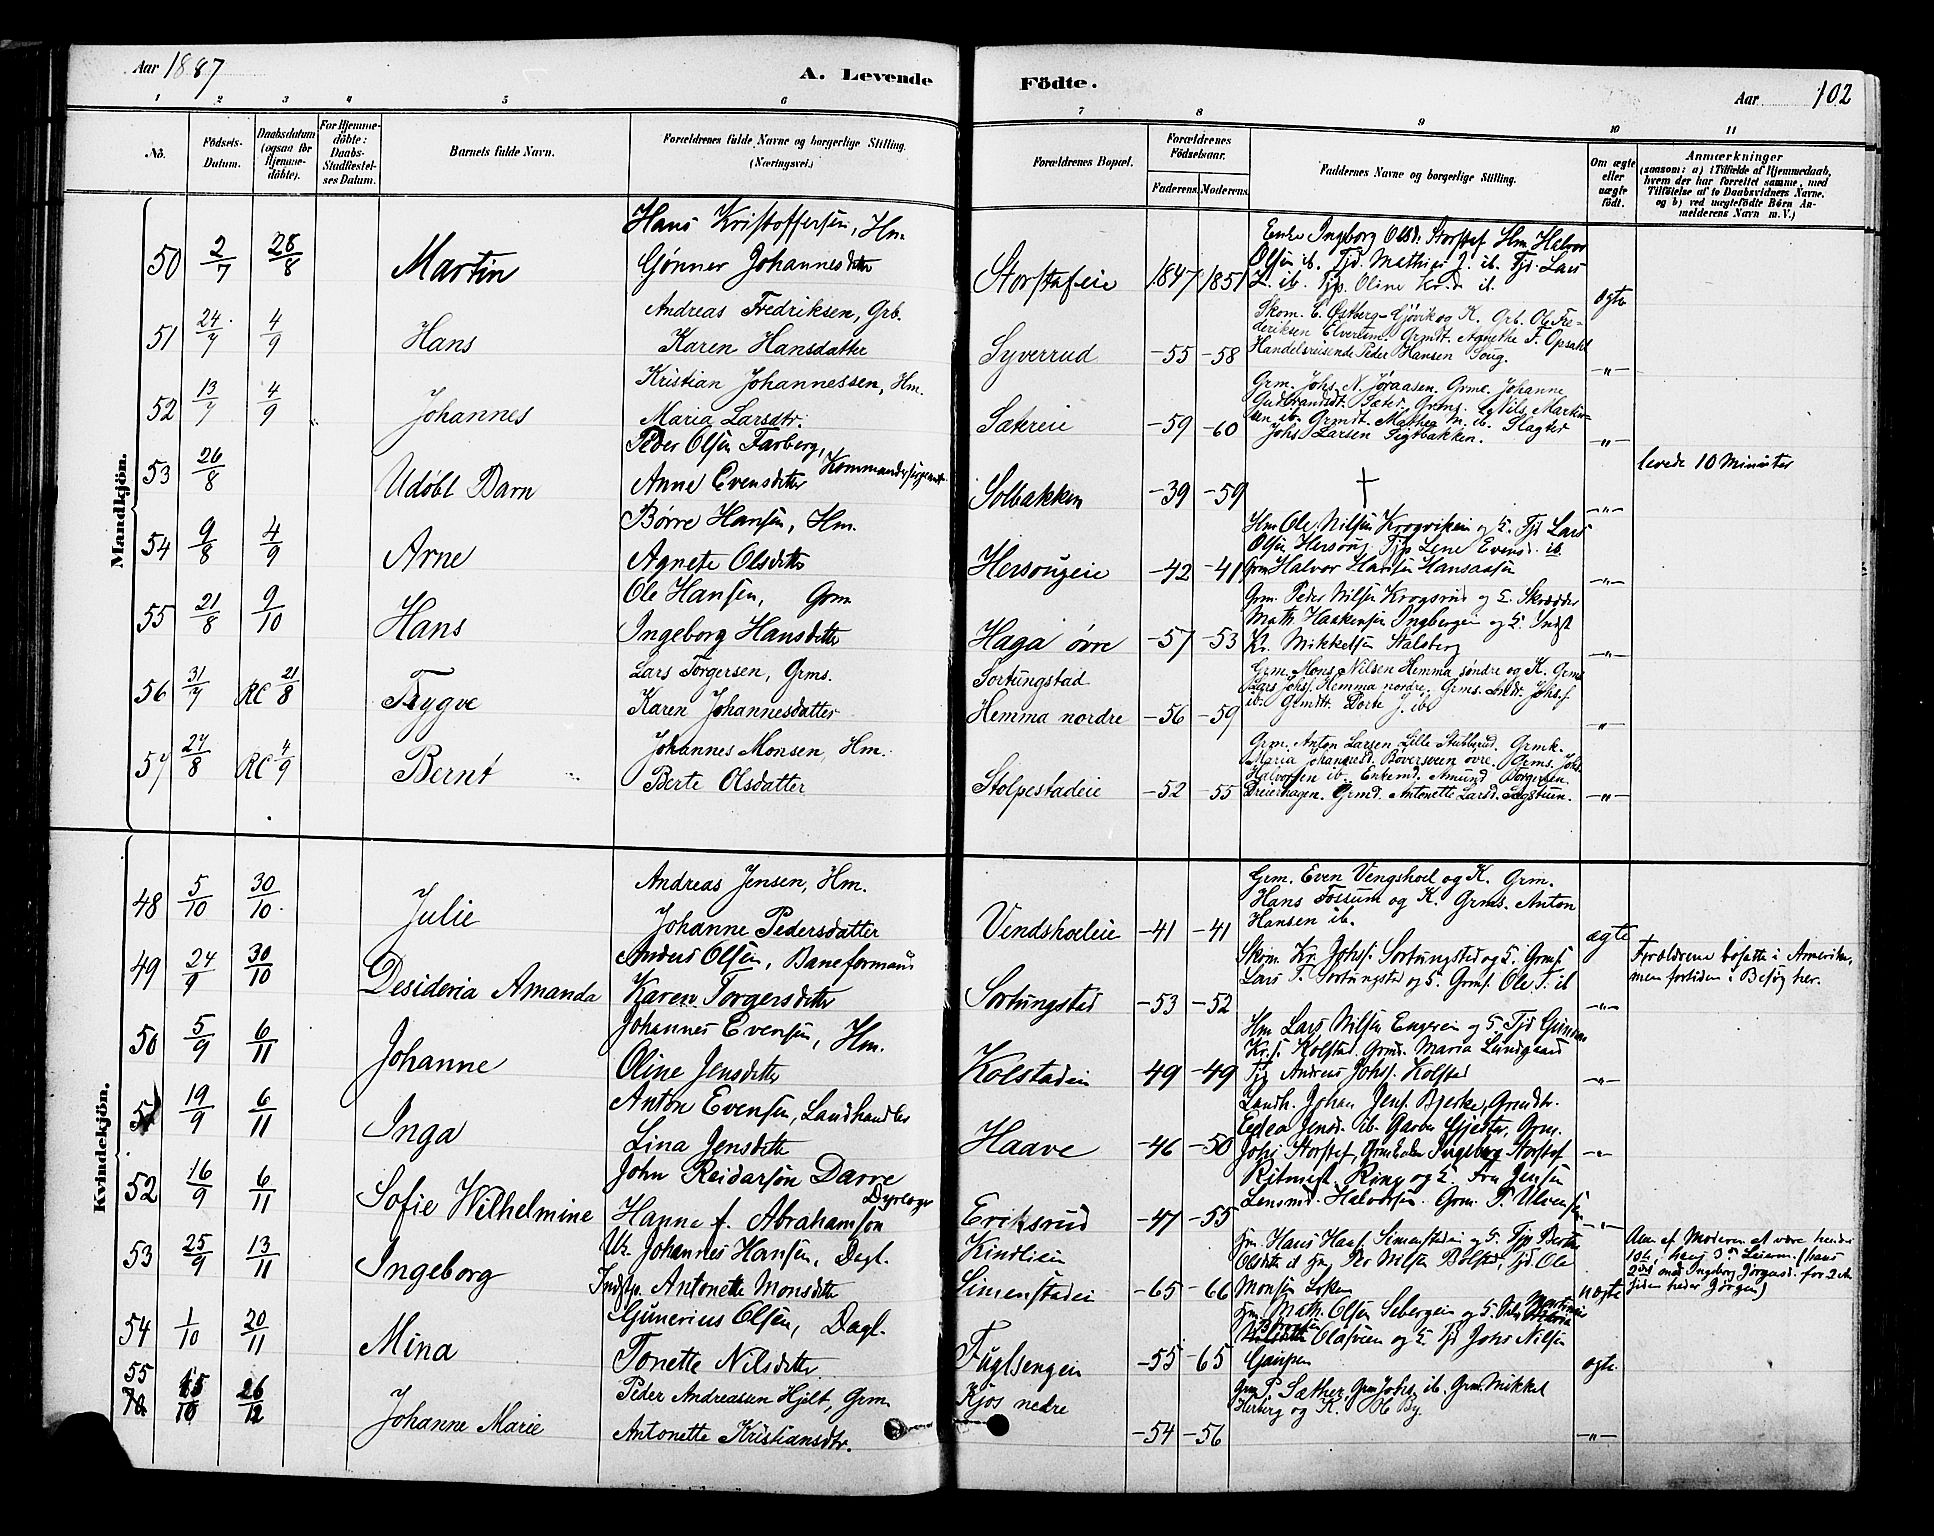 Aar 1887
A. Levende
Födte.
Aar 102
1 2 3 4 5 6 7 8 9 10 11
No.
Födsels-Datum.
Daabsdatum (ogsaa for Hjemme-döbte).
For Hjemme-döbte: Daabs-Stadfæstel-ses Datum.
Barnets fulde Navn.
Forældrenes fulde Navne og borgerlige Stilling.
(Næringsvei.)
Forældrenes Bopæl.
Forældrenes Födselsaar.
Faderens. Moderens.
Faddernes Navne og borgerlige Stilling.
Om ægte eller uægte født.
Anmærkninger
(saasom: a) i Tilfælde af Hjemmedaab,
hvem der har forrettet samme, med
Tilföielse af to Daabsvidners Navne.
og b) ved uægtefödte Börn An-
melderens Navn m. V.)
Mandkjön.
50 2/7 28/8 Martin
Hans Kristoffersen, Hm.
Gønner Johannesdtter
Storstafeie 1847 1851
Enke Ingeborg Olsd. Storstef Hm Halvor
Olsen ib. Tjd. Mathias J. ib. Tjd. Lars
L. ib. Tjp. Oline Kr.d ib.
ægte
51 24/7 4/9 Hans
Andreas Fredriksen, Grb.
Karen Hansdatter
Syverrud -55 -58
Skom. E. Østberg-Gjøvik og K. Grb. Ole Fre-
deriksen Elvertun. Grmdt. Agnethe F. Opsahl
Handelsreisende Peder Hansen Soug.
-"-
52 13/7 4/9 Johannes
Kristian Johannessen, Hm.
Maria Larsdtr.
Sætreie -59 -60
Grm. Johs. N. Jøraasen. Grme. Johanne
Gudbrandsdt. Sæter. Grmg. Nils Martin-
sen ib. Grmdt. Mathea M. ib. Slagter
Johs Larsen Sigtbakken.
-"-
53 26/8 Udøbt Barn
Peder Olsen Farberg, Kommandersergeant
Anne Evensdtter
Solbakken -39 -59
+
-"-
levede 10 Minuter
54 9/8 4/9 Arne
Børre Hansen, Hm.
Agnete Olsdtter
Hersougeie -42 -41
Hm Ole Nilsen Krogviken og E. Tjd Lars
Olsen Hersoug Tjp Lene Evensd. ib.
Grm Halvor Hansen Hansaasen
-"-
55 21/8 9/10 Hans
Ole Hansen, Grm
Ingeborg Hansdtter
Haga øvre -57 -53
Grm. Peder Nilsen Krogsrud og E. Skrædder
Math. Haakensen Ingbergeie og E. Indst
Kr. Mikkelsen Stalsberg
-"-
56 31/7 RC 21/8 Trygve
Lars Torgersen, Grms.
Karen Johannesdatter
Sortungstad
Hemma nordre -56 -59
Grm. Mons Nilsen Hemma søndre og K. Grms
Lars Johs. Hemma nordre. Grms. Johs.
ib. Grmdt. Dorte J. ib.
"
57 27/8 RC 4/9 Bernt
Johannes Monsen, Hm.
Berte Olsdatter
Stolpestadeie -52 -55
Grm. Anton Larsen Lille Stubberud. Grmk.
Maria Johannesd. Bøverseen øvre. Grms. Johs.
Halvorsen ib. Enkemd. Amund Torgersen
Dreierhagen. Grmd. Antonette Larsd. Sagstuen.
-"-
Kvindekjön.
48 5/10 30/10 Julie
Andreas Jensen, Hm.
Johanne Pedersdatter
Vendshoeleie -41 -41
Grm. Even Vengshoel og K. Grm.
Hans Fossum og K. Grms. Anton
Hansen ib.
ægte
49 24/9 30/10 Desideria Amanda
Anders Olsen, Baneformand
Karen Torgersdtter
Sortungstad -53 -52
Skom. Kr. Johs. Sortungstad og E. Grms.
Lars T. Sortungstad og E. Grms. Ole T. ib
-"-
Forældrene bosatte i Amerika,
men fortiden i Besøg her.
50 5/9 6/11 Johanne
Johannes Evensen, Hm.
Oline Jensdtter
Kolstadeie 49 -49
Hm Lars Nilsen Engereie og E. Tjd Gunnar
Kr.s. Kolstad. Grmd. Maria Lundgaard
Tjg Andreas Johs. Kolstad
-"-
51 19/9 6/11 Inga
Anton Evensen, Landhandler
Lina Jensdtter
Haave -46 -50
Landh. Johan Jens. Bjerke, Grmdtr.
Jensd. ib. Garver Gjester, Grm.
Johs Storstef, Grm Enke Ingeborg Storstef
-"-
52 16/9 6/11 Sofie Wilhelmine
John Reidarson Darre Dyrlæge
Hanne f. Abrahamson
Eriksrud -47 -55
Ritmest. Ring og E. Fru Jensen
Lensmd. Halvorsen. Grm. P. Ulvensen
-"-
53 25/9 13/11 Ingeborg
Uk. Johannes Hansen, Dagl.
Indstp. Antonette Monsdtter
Kindlien
Simenstadei -65 -66
Hm. Hans Hans. Simenstadeie og E. Tjp Berthe
Olsdtter Kr Nilsen Bolstad, Tjd Ole
Monsen Loken
uægte
Den af Moderen at være hendes
1ste, hans 3die Leierm. (hans
2det med Ingeborg Jørgensd. for 2 Aar
siden heder Jørgen)
54 1/10 20/11 Mina
Gunerius Olsen, Dagl.
Tonette Nilsdtter
Fuglsengen -55 -65
Hm Math. Olsen Sebergeie og E.
Olafsveen og E Tjd Johs Nilsen
Gaupen
ægte.
55 15/10 26/12 Johanne Marie
Peder Andreasen Hjelt, Grm
Antonette Kristiansdtr.
Kjos nedre -54 -56
Grm P. Sæther, Grm Johs. ib. Grm. Mikkel
Herberg og K. By.
-"-